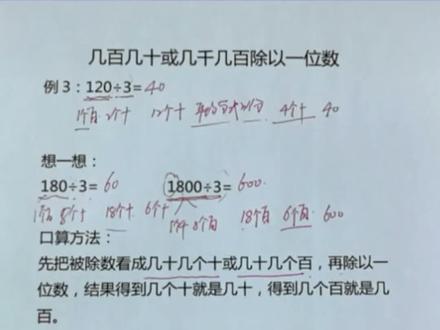 几百几十或几千几百除以一位数
例3：120÷3=40
1个百 2个十 12个十 4个十 40
想一想：
180÷3=60 1800÷3=600
1个百 8个十 18个十 6个十 1个千 8个百 18个百 6个百 600
口算方法：
先把被除数看成几十几个十或几十几个百，再除以一
位数，结果得到几个十就是几十，得到几个百就是几
百。